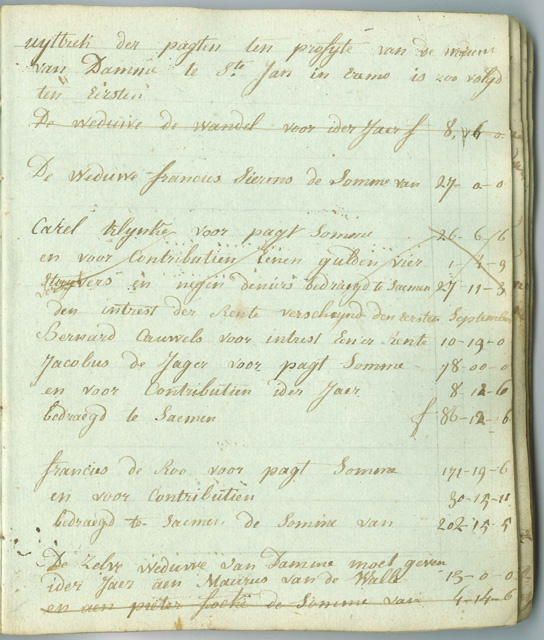 uyttrek der pagten ten profyte van de weduwe
van Damme te Ste Jan in eremo is zoo volgd
ten Eersten
De weduwe de wandel voor ider Jaer f 8-6-0
De weduwe francius Siermo de Somme van 27-0-0
Carel klynke voor pagt Somme 26-6-6
en voor Contributien Eenen gulden vier 1-4-9
Stuyvers en negen deniers bedraegd te saemen 27-11-3
den intrest der Rente verscheynd den eersten September
Bernard Cauwels voor intrest Eener Rente 10-19-0
Jacobus de Jager voor pagt Somme 78-00-0
en voor Contributien ider Jaer 8-12-6
bedraegd te Saemen f 86-12-6
francius de Roo voor pagt Somme 171-19-6
en voor Contributien 30-15-11
bedraegd te Saemen de Somme van 202-15-5
De Zelve weduwe van Damme moet geven
ider Jaer aen Maurus van de Walle 15-0-0
en aen pieter de Somme van 4-14-6